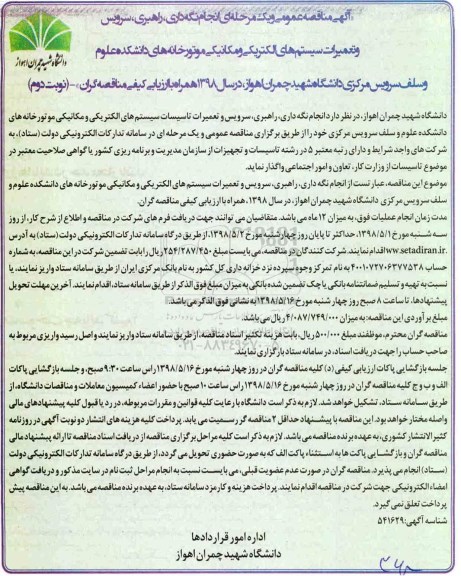 «آگهی مناقصه عمومی و یک مرحله ای انجام نگه داری، راهبری، سرویس
وتعمیرات سیستم های الکتریکی ومکانیکی موتور خانه های دانشکده علوم
وسلف سرویس مرکزی دانشگاه شهید چمران اهواز، در سال ۱۳۹۸ همراه با ارزیابی کیفی مناقصه گران» - (نوبت دوم)
دانشگاه شهید چمران اهواز
دانشگاه شهید چمران اهواز، در نظر دارد انجام نگه داری، راهبری، سرویس و تعمیرات تاسیسات سیستم های الکتریکی و مکانیکی موتور خانه های
دانشکده علوم و سلف سرویس مرکزی خود را از طریق برگزاری مناقصه عمومی و یک مرحله ای در سامانه تدارکات الکترونیکی دولت (ستاد)، به
شرکت های واجد شرایط و دارای رتبه معتبر ۵ در رشته تاسیسات و تجهیزات از سازمان مدیریت و برنامه ریزی کشور یا گواهی صلاحیت معتبر در
موضوع تاسیسات از وزارت کار، تعاون و امور اجتماعی واگذار نماید.
موضوع این مناقصه، عبارتست از انجام نگه داری، راهبری، سرویس و تعمیرات سیستم های الکتریکی و مکانیکی موتور خانه های دانشکده علوم و
سلف سرویس مرکزی دانشگاه شهید چمران اهواز، در سال ۱۳۹۸، همراه با ارزیابی کیفی مناقصه گران.
مدت زمان انجام عملیات فوق، به میزان ۱۲ ماه می باشد. متقاضیان می توانند جهت دریافت فرم های شرکت در مناقصه و اطلاع از شرح کار، از روز
سه شنبه مورخ ۱۳۹۸/۵/۱، حداکثر تا پایان روز چهارشنبه مورخ ۱۳۹۸/۵/۲، از طریق درگاه سامانه تدارکات الکترونیکی دولت (ستاد) به آدرس
www.setadiran.ir اقدام نمایند. شرکت کنندگان در مناقصه، می بایست مبلغ ۲۵۴/۲۸۷/۴۵۰ ریال را بابت تضمین شرکت در این مناقصه، به شماره
حساب ۴۰۰۱۰۷۲۷۰۶۳۷۷۵۳۸ به نام تمرکز وجوه سپرده نزد خزانه داری کل کشور به نام بانک مرکزی ایران از طریق سامانه ستاد واریز نمایند، یا
نسبت به تهیه و تسلیم ضمانتنامه بانکی یا چک تضمین شده بانکی به میزان مبلغ فوق الذکر از طریق سامانه ستاد، اقدام نمایند. آخرین مهلت تحویل
پیشنهادها، تا ساعت ۸ صبح روز چهار شنبه مورخ ۱۳۹۸/۵/۱۶ به نشانی فوق الذکر می باشد.
مبلغ برآوردی این مناقصه: به میزان ۴/۰۸۷/۷۴۹/۰۰۰ ریال می باشد.
مناقصه گران محترم، موظفند مبلغ ۵۰۰/۰۰۰ ریال، بابت هزینه تکثیر اسناد مناقصه، از طریق سامانه ستاد واریز نمایند و اصل رسید واریزی مربوط به
صاحب حساب را جهت دریافت اسناد، در سامانه ستاد بارگزاری نمایند.
جلسه بازگشایی پاکات ارزیابی کیفی (د) کلیه مناقصه گران در روز چهار شنبه مورخ ۱۳۹۸/۵/۱۶ راس ساعت ۹:۳۰ صبح، و جلسه بازگشایی پاکات
الف و ب و ج کلیه مناقصه گران در روز چهار شنبه مورخ ۱۳۹۸/۵/۱۶ راس ساعت ۱۰ صبح با حضور اعضاء کمیسیون معاملات و مناقصات دانشگاه، از
طریق سامانه ستاد، تشکیل خواهد شد. لازم به ذکر است دانشگاه با رعایت کلیه قوانین و مقررات مربوطه، در رد یا قبول کلیه پیشنهادهای مالی
واصله مختار خواهد بود. این مناقصه با پیشنهاد حداقل ۲ مناقصه گر رسمیت می یابد. پرداخت کلیه هزینه های انتشار دو نوبت آگهی در روزنامه
کثیر الانتشار کشوری، به عهده برنده مناقصه می باشد. لازم به ذکر است کلیه مراحل برگزاری مناقصه از دریافت اسناد مناقصه تا ارائه پیشنهاد مالی
مناقصه گران و بازگشایی پاکت ها به استثناء پاکت الف که به صورت حضوری تحویل می گردد، از طریق درگاه سامانه تدارکات الکترونیکی دولت
(ستاد) انجام می پذیرد. مناقصه گران در صورت عدم عضویت قبلی، می بایست نسبت به انجام مراحل ثبت نام در سایت مذکور و دریافت گواهی
امضاء الکترونیکی جهت شرکت در مناقصه اقدام نمایند. پرداخت هزینه و کارمزد سامانه ستاد، به عهده برنده مناقصه می باشد. به این مناقصه پیش
پرداخت تعلق نمی گیرد.
شناسه آگهی: ۵۴۱۶۲۹
اداره امور قراردادها
دانشگاه شهید چمران اهواز